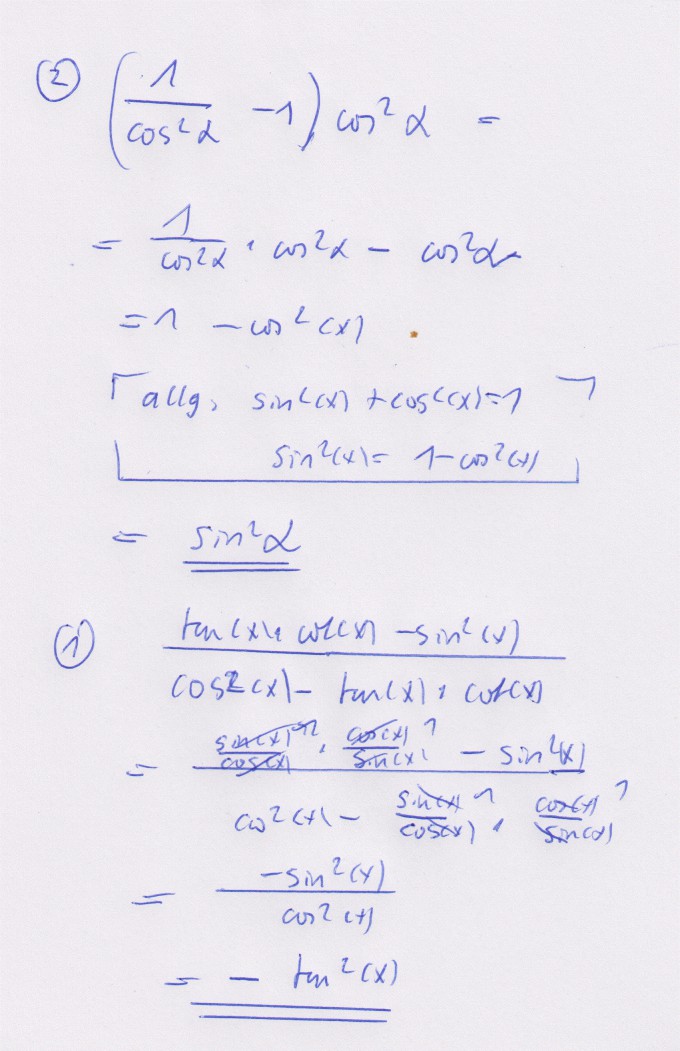 ② (1/cos²α − 1) cos²α =
= 1/cos²α · cos²α − cos²α
= 1 − cos²(x)
allg. sin²(x) + cos²(x) = 1
sin²(x) = 1 − cos²(x)
= sin²α
① (tan(x) · cot(x) − sin²(x)) / (cos²(x) − tan(x) · cot(x))
= (sin(x)/cos(x) · cos(x)/sin(x) − sin²(x)) / (cos²(x) − sin(x)/cos(x) · cos(x)/sin(x))
= −sin²(x) / cos²(x)
= − tan²(x)